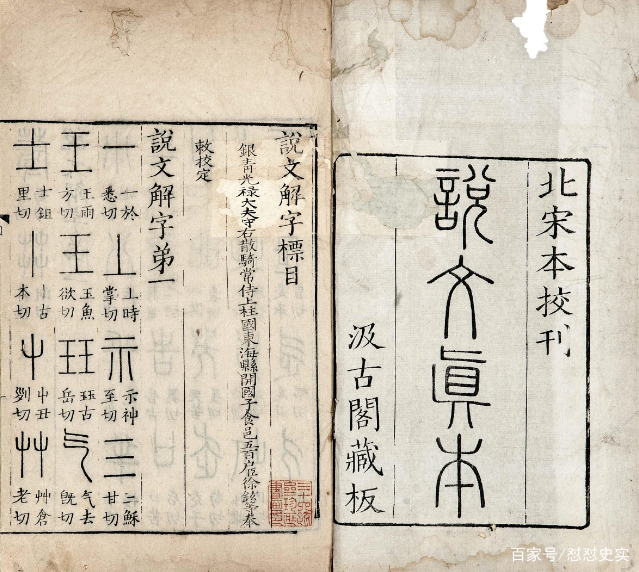 北宋本挍刊
說文眞本
汲古閣藏板
說文解字標目
銀青光祿大夫守右散騎常侍上柱國東海縣開國子食邑五百戶臣徐鉉等奉
敕挍定
說文解字弟一
一 一於悉切 丄 丄時掌切 示 示神至切 三 三穌甘切
王 王雨方切 玉 玉魚欲切 玨 玨古岳切 气 气去旣切
士 士鉏里切 丨 丨古本切 屮 屮丑列切 艸 艸倉老切
百家号/怼怼史实